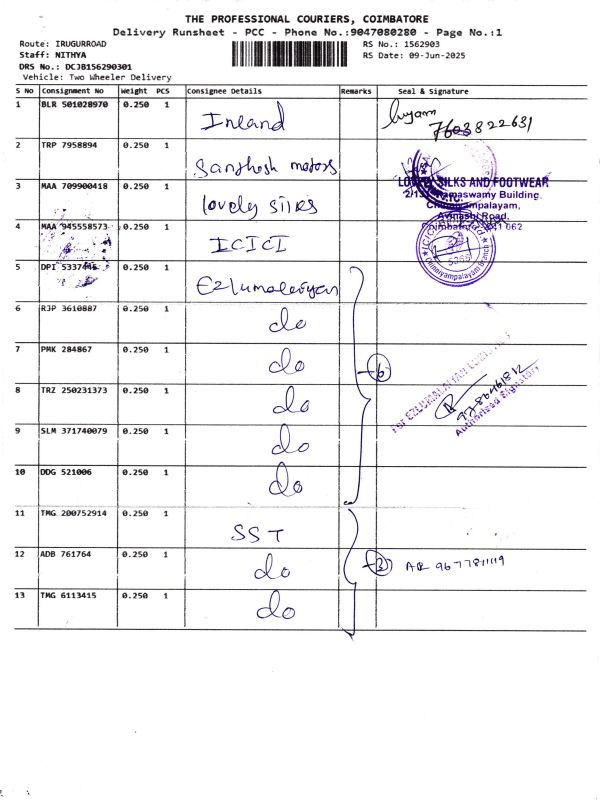 THE PROFESSIONAL COURIERS, COIMBATORE
Delivery Runsheet - PCC - Phone No.:9047080280 - Page No.:1
Route: IRUGURROAD
RS No.: 1562903
Staff: NITHYA
RS Date: 09-Jun-2025
DRS No.: DCJB156290301
Vehicle: Two Wheeler Delivery
S No Consignment No Weight PCS Consignee Details Remarks Seal & Signature
1 BLR 501028970 0.250 1 Inland
7603822631
2 TRP 7958894 0.250 1 Santhosh motors
3 MAA 709900418 0.250 1 lovely silks
LOVELY SILKS AND FOOTWEAR
Ramaswamy Building,
Chinniyampalayam,
Avinashi Road,
Coimbatore - 641 062
4 MAA 945558573 0.250 1 ICICI
5 DPI 0.250 1 Ezlumalaiyan
6 RJP 3610887 0.250 1 do
7 PMK 284867 0.250 1 do
6
8 TRZ 250231373 0.250 1 do
For EZLUMALAIYAN
Authorised Signatory
9 SLM 371740079 0.250 1 do
10 DDG 521006 0.250 1 do
11 TMG 200752914 0.250 1 SST
12 ADB 761764 0.250 1 do
3
13 TMG 6113415 0.250 1 do